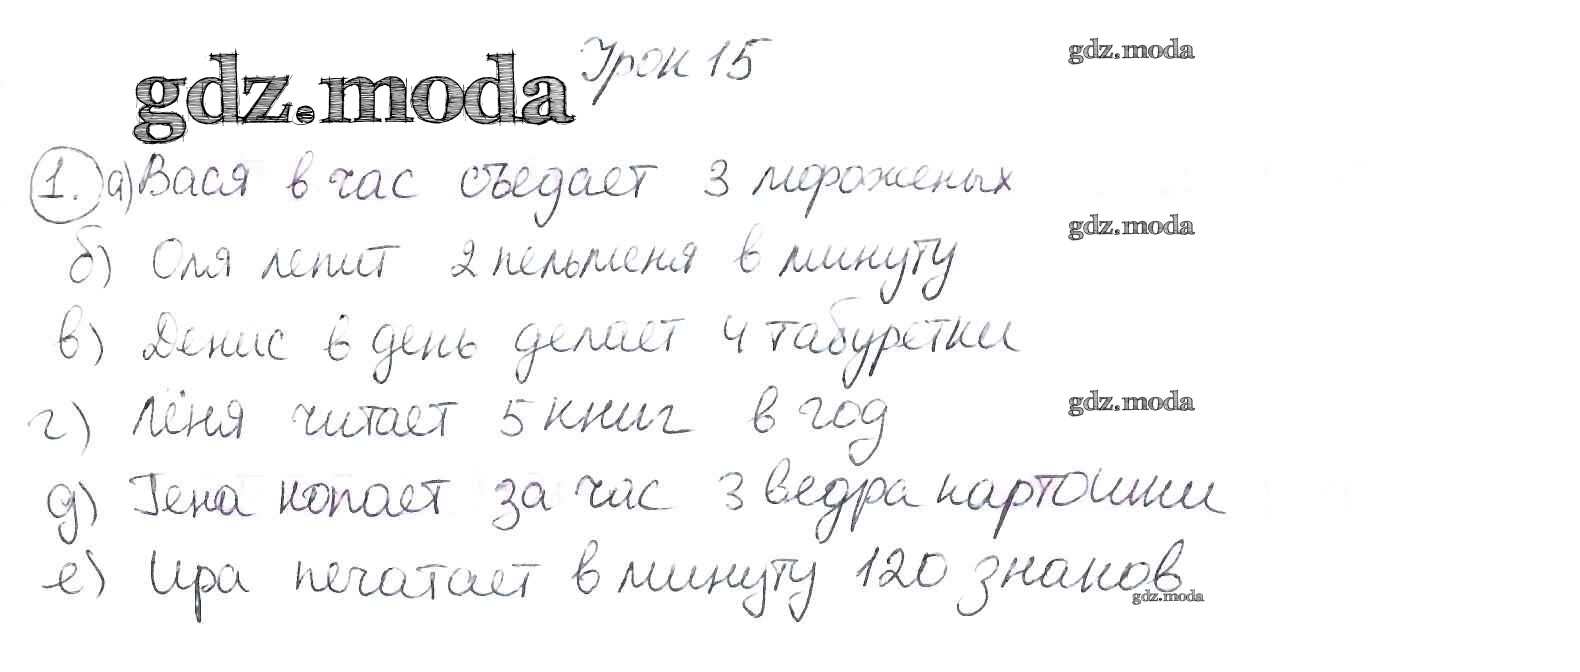 gdz.moda Урок 15 gdz.moda
1. а) Вася в час съедает 3 мороженых
gdz.moda
б) Оля лепит 2 пельменя в минуту
в) Денис в день делает 4 табуретки
г) Лёня читает 5 книг в год gdz.moda
д) Гена копает за час 3 ведра картошки
е) Ира печатает в минуту 120 знаков.
gdz.moda